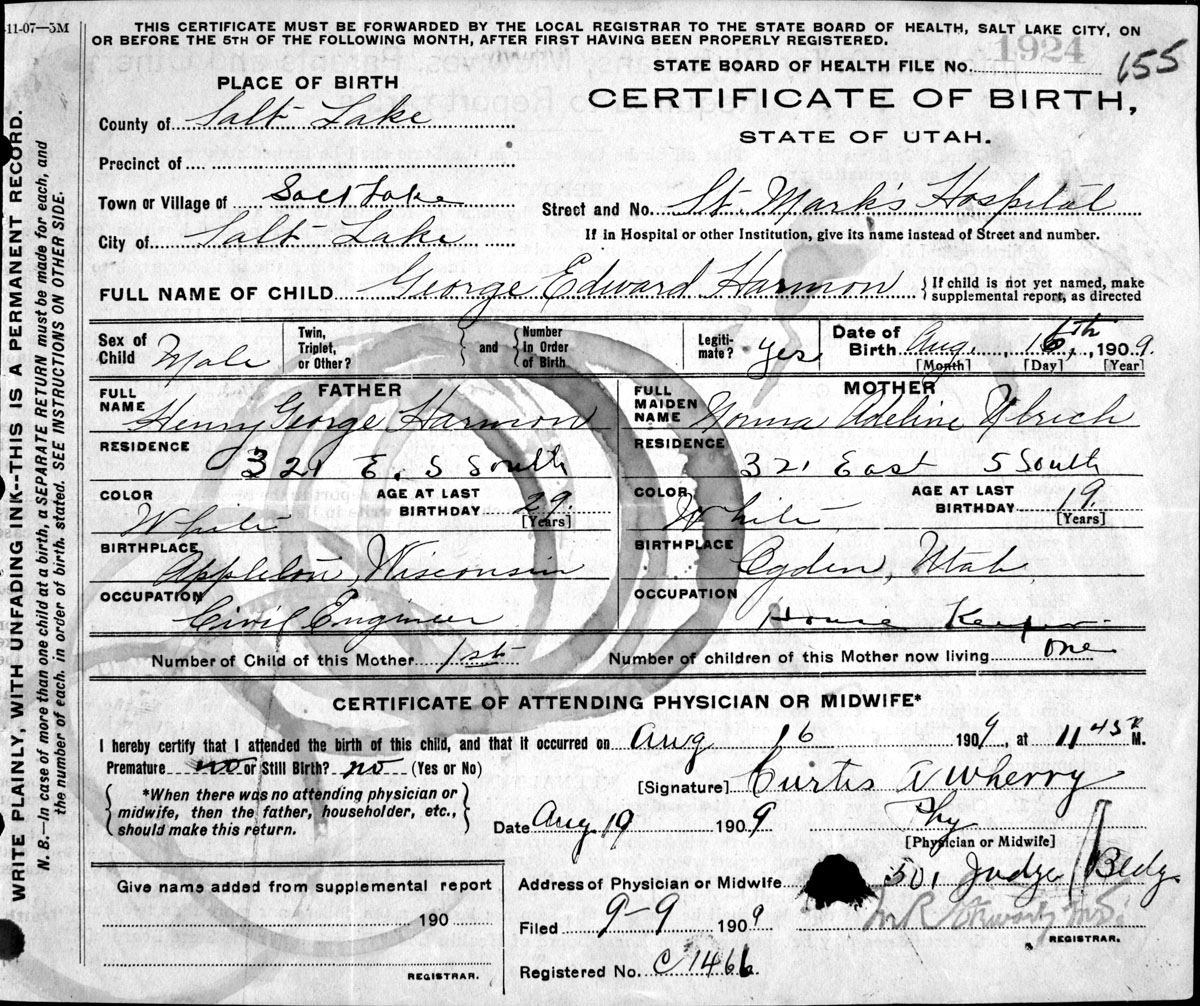 11-07—5M
THIS CERTIFICATE MUST BE FORWARDED BY THE LOCAL REGISTRAR TO THE STATE BOARD OF HEALTH, SALT LAKE CITY, ON
OR BEFORE THE 5TH OF THE FOLLOWING MONTH, AFTER FIRST HAVING BEEN PROPERLY REGISTERED.
1924
STATE BOARD OF HEALTH FILE No. 155
PLACE OF BIRTH
CERTIFICATE OF BIRTH,
STATE OF UTAH.
County of Salt Lake
Precinct of
Town or Village of Salt Lake
Street and No. St. Mark's Hospital
City of Salt Lake
If in Hospital or other Institution, give its name instead of Street and number.
FULL NAME OF CHILD George Edward Harmon
{ If child is not yet named, make
supplemental report, as directed
Sex of Child Male
Twin, Triplet, or Other?
} and {
Number In Order of Birth
Legiti-mate? yes
Date of Birth Aug., 16th, 1909.
[Month] [Day] [Year]
FATHER
FULL NAME Henry George Harmon
RESIDENCE 321 E. 5 South
COLOR White
AGE AT LAST BIRTHDAY 29.
[Years]
BIRTHPLACE Appleton, Wisconsin
OCCUPATION Civil Engineer
MOTHER
FULL MAIDEN NAME Norma Adeline Ulrich
RESIDENCE 321 East 5 South
COLOR White
AGE AT LAST BIRTHDAY 19.
[Years]
BIRTHPLACE Ogden, Utah
OCCUPATION House Keeper
Number of Child of this Mother 1st
Number of children of this Mother now living one
CERTIFICATE OF ATTENDING PHYSICIAN OR MIDWIFE*
I hereby certify that I attended the birth of this child, and that it occurred on Aug 16 1909, at 11 45 P M.
Premature no or Still Birth? no (Yes or No)
[Signature] Curtis A Wherry
{ *When there was no attending physician or
midwife, then the father, householder, etc.,
should make this return. }
Date Aug. 19 1909
Phy
[Physician or Midwife]
Give name added from supplemental report
190
REGISTRAR.
Address of Physician or Midwife 501 Judge Bldg
Filed 9-9 1909
REGISTRAR.
Registered No. C 1466
WRITE PLAINLY, WITH UNFADING INK--THIS IS A PERMANENT RECORD.
N. B.—In case of more than one child at a birth, a SEPARATE RETURN must be made for each, and
the number of each. in order of birth. stated. SEE INSTRUCTIONS ON OTHER SIDE.